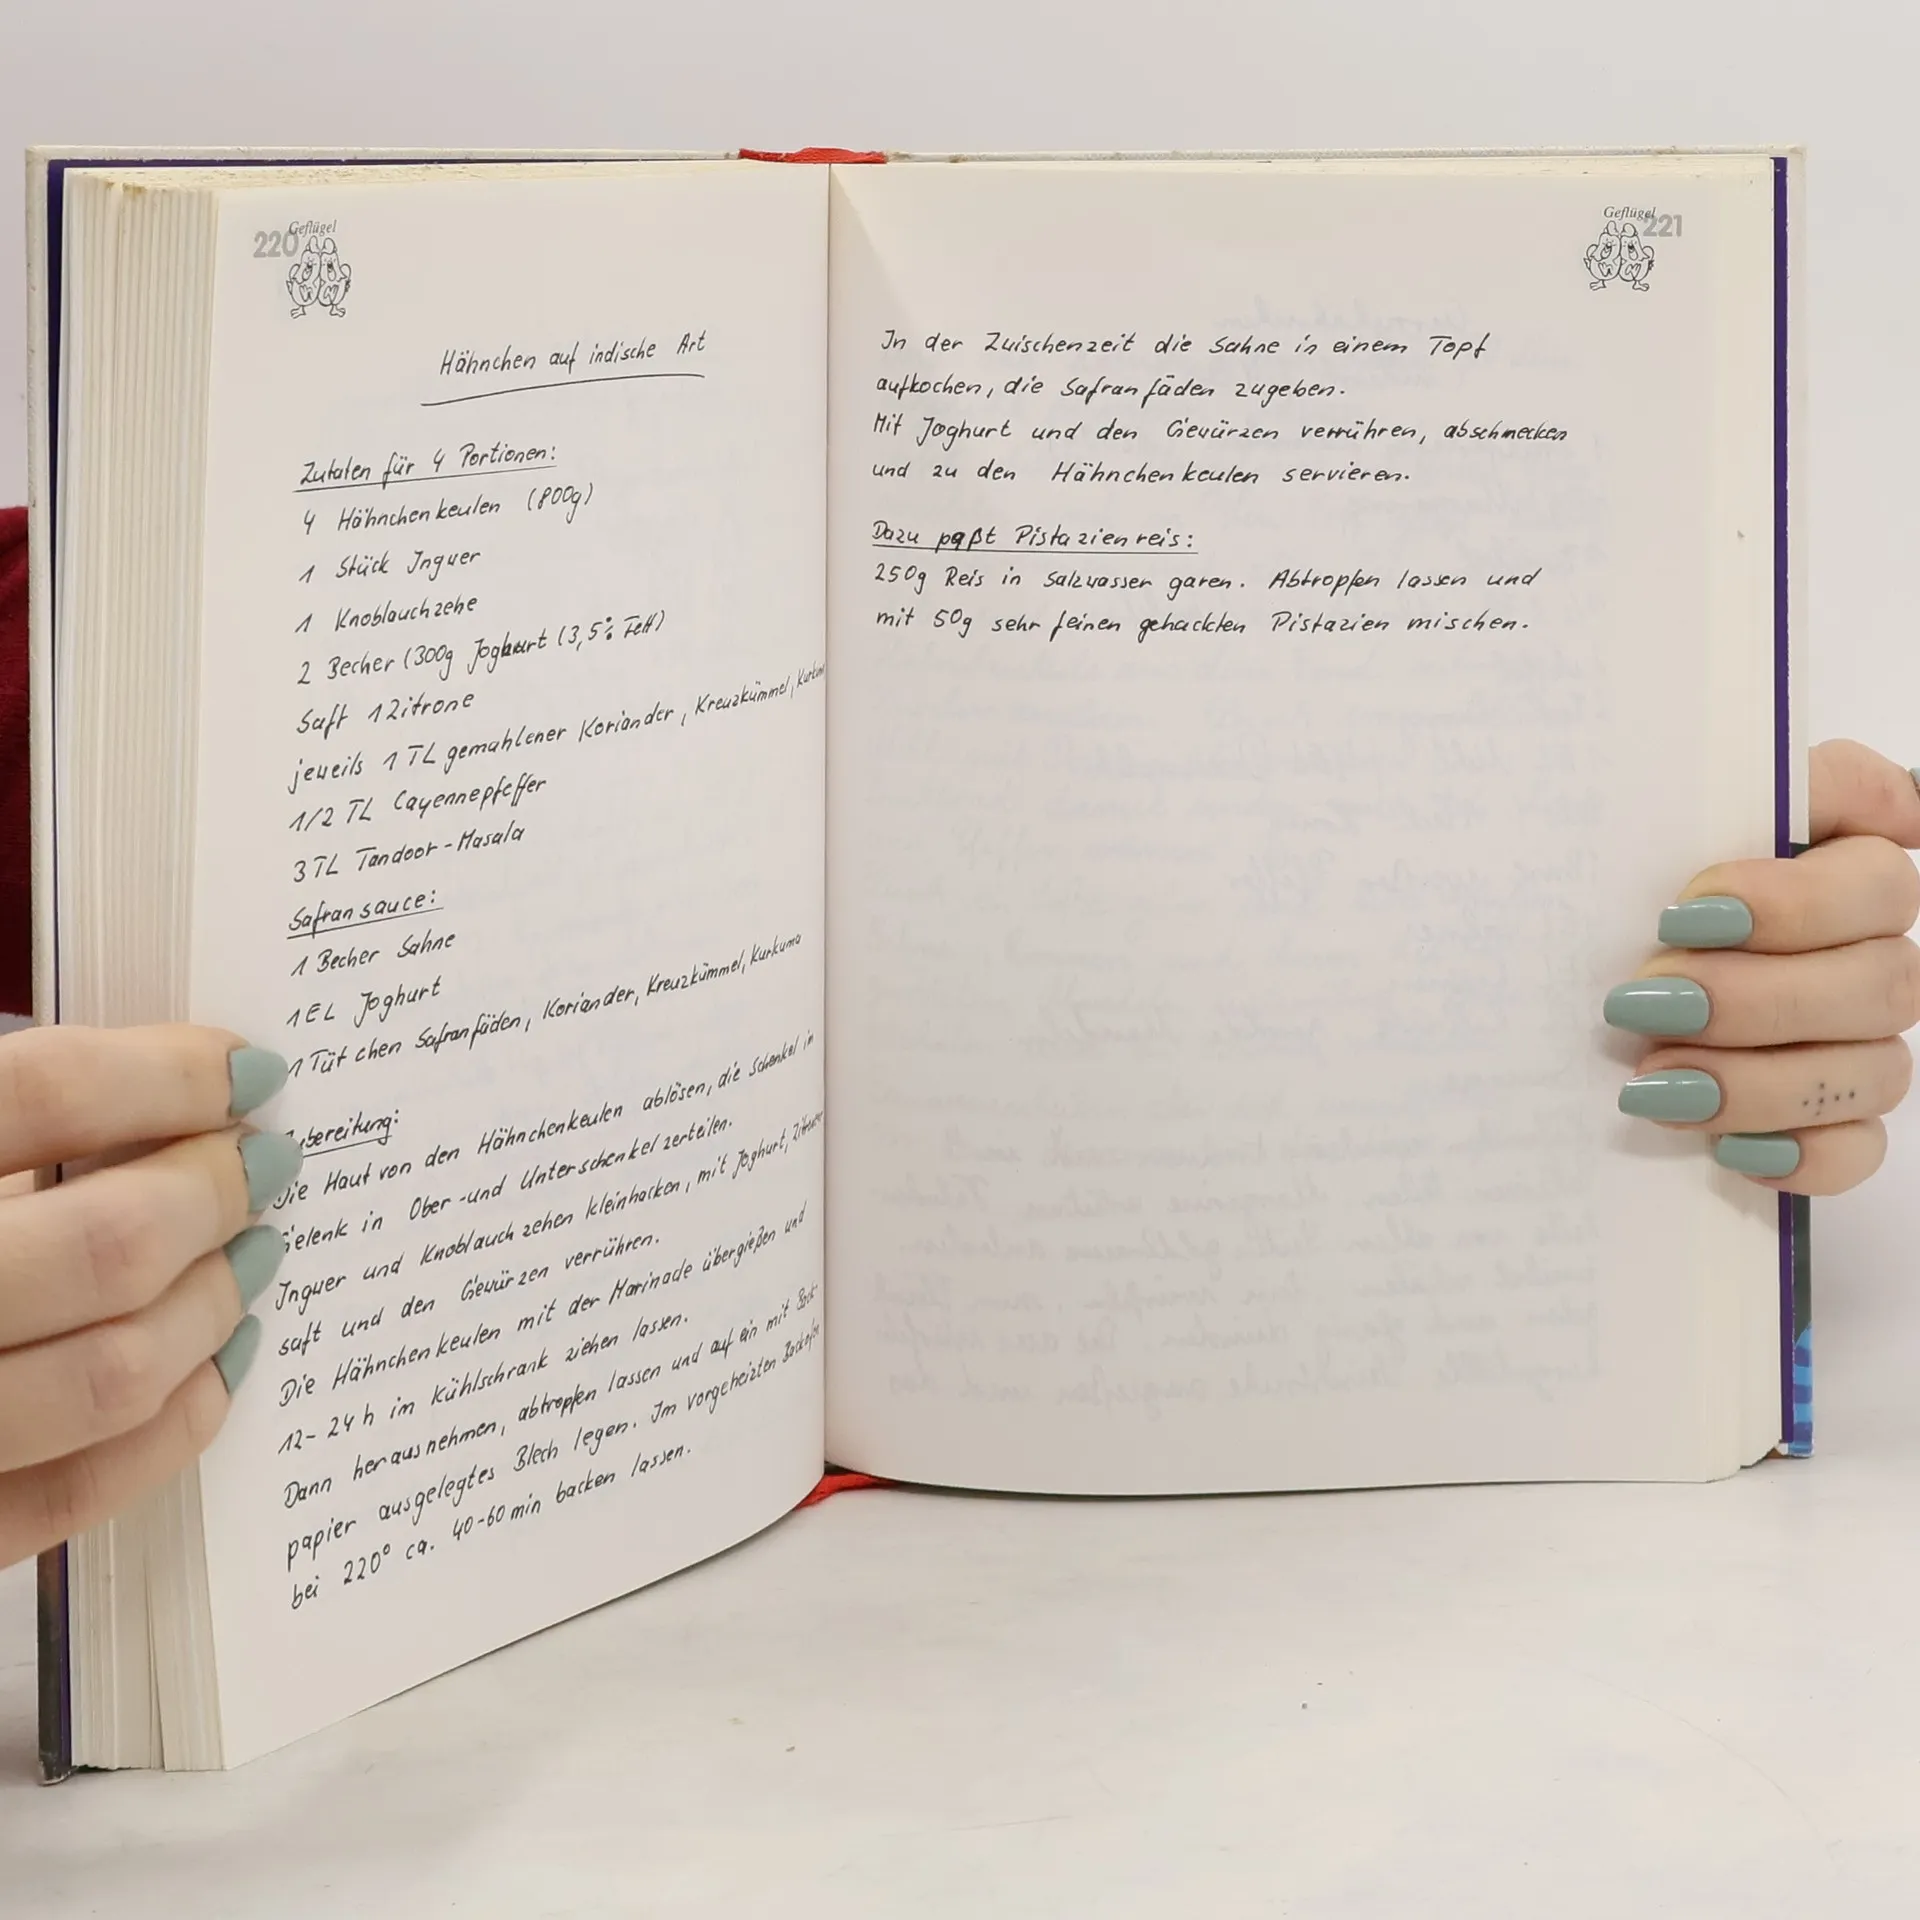 220
Geflügel
Hähnchen auf indische Art
Zutaten für 4 Portionen:
4 Hähnchenkeulen (800g)
1 Stück Ingwer
1 Knoblauchzehe
2 Becher (300g Joghurt (3,5% Fett)
Saft 1 Zitrone
jeweils 1 TL gemahlener Koriander, Kreuzkümmel,
1/2 TL Cayennepfeffer
3 TL Tandoor-Masala
Safransauce:
1 Becher Sahne
1 EL Joghurt
1 Tütchen Safranfäden, Koriander, Kreuzkümmel, Kurkuma
Zubereitung:
Die Haut von den Hähnchenkeulen ablösen, die Schenkel im
Gelenk in Ober-und Unterschenkel zerteilen.
Ingwer und Knoblauchzehen kleinhacken, mit Joghurt,
saft und den Gewürzen verrühren.
Die Hähnchenkeulen mit der Marinade übergießen und
12-24h im Kühlschrank ziehen lassen.
Dann herausnehmen, abtropfen lassen und auf ein mit Back-
papier ausgelegtes Blech legen. Im vorgeheizten Backofen
bei 220° ca. 40-60 min backen lassen.
Geflügel
221
In der Zwischenzeit die Sahne in einem Topf
aufkochen, die Safranfäden zugeben.
Mit Joghurt und den Gewürzen verrühren, abschmecken
und zu den Hähnchenkeulen servieren.
Dazu paßt Pistazienreis:
250g Reis in Salzwasser garen. Abtropfen lassen und
mit 50g sehr feinen gehackten Pistazien mischen.